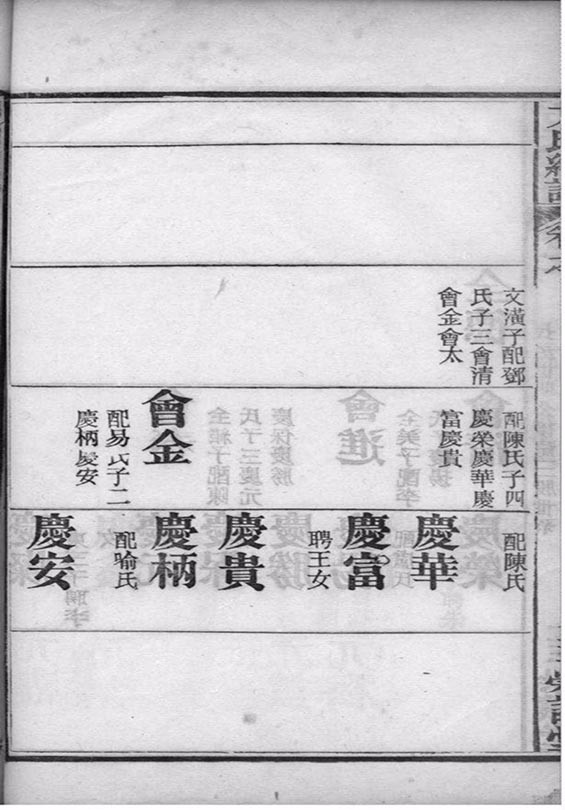 文潢子配鄧
氏子三會清
會金會太
配陳氏子四
慶榮慶華慶
富慶貴
會金
配易氏子二
慶柄慶安
配陳氏
慶華
慶富
聘王女
慶貴
慶柄
配喻氏
慶安